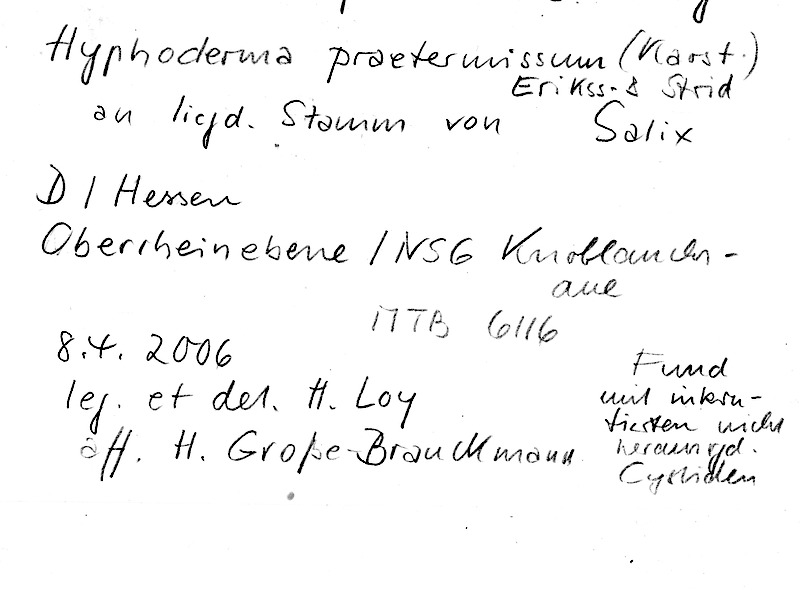 Hyphoderma praetermissum (Karst.)
Erikss. & Strid
an liegd. Stamm von Salix
D / Hessen
Oberrheinebene / NSG Knoblauchs-
aue
MTB 6116
8.4. 2006
leg. et det. H. Loy
aff. H. Große-Brauckmann
Fund
mit inkru-
tierten nicht
herausrgd.
Cystiden